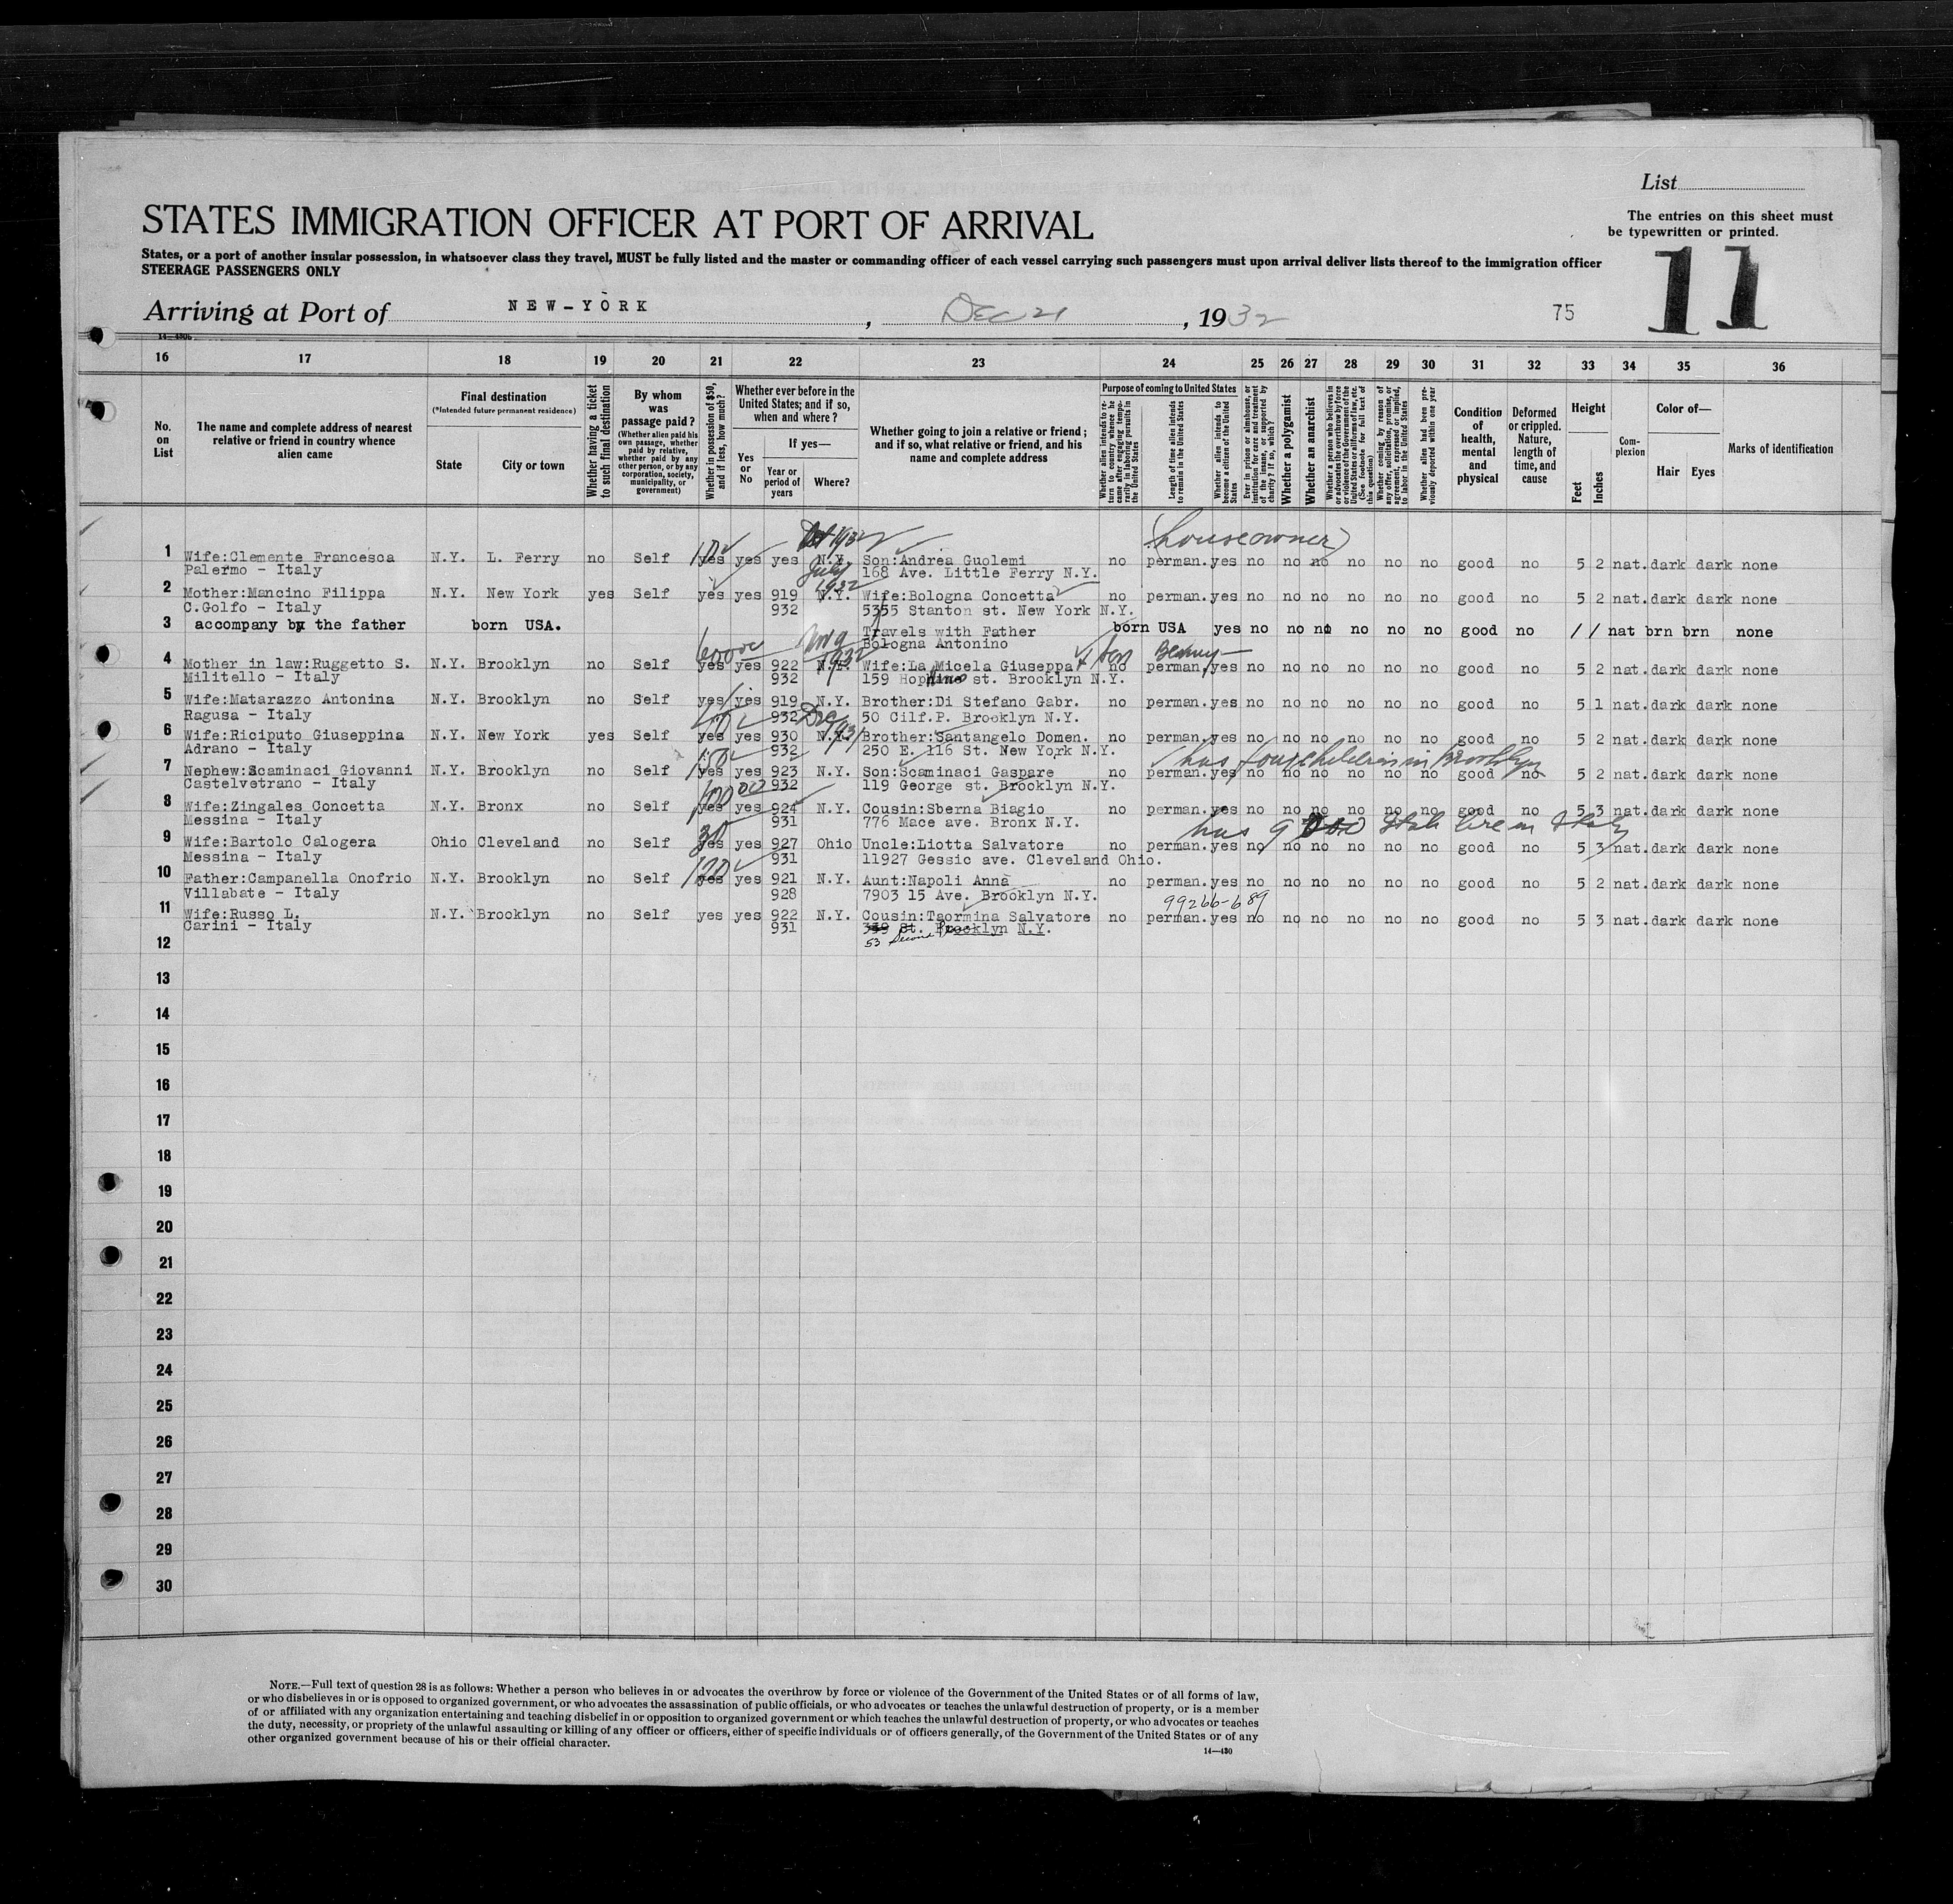 List
STATES IMMIGRATION OFFICER AT PORT OF ARRIVAL
The entries on this sheet must
be typewritten or printed.
States, or a port of another insular possession, in whatsoever class they travel, MUST be fully listed and the master or commanding officer of each vessel carrying such passengers must upon arrival deliver lists thereof to the immigration officer
STEERAGE PASSENGERS ONLY
11
Arriving at Port of NEW-YORK, Dec 21, 1932
75
14—430b
16 17 18 19 20 21 22 23 24 25 26 27 28 29 30 31 32 33 34 35 36
No. on List
The name and complete address of nearest relative or friend in country whence alien came
Final destination
(*Intended future permanent residence)
State
City or town
Whether having a ticket to such final destination
By whom was passage paid?
(Whether alien paid his own passage, whether paid by relative, whether paid by any other person, or by any corporation, society, municipality, or government)
Whether in possession of $50, and if less, how much?
Whether ever before in the United States; and if so, when and where?
Yes or No
If yes—
Year or period of years
Where?
Whether going to join a relative or friend; and if so, what relative or friend, and his name and complete address
Purpose of coming to United States
Whether alien intends to return to country whence he came after engaging temporarily in laboring pursuits in the United States
Length of time alien intends to remain in the United States
Whether alien intends to become a citizen of the United States
Ever in prison or almshouse, or institution for care and treatment of the insane, or supported by charity? If so, which?
Whether a polygamist
Whether an anarchist
Whether a person who believes in or advocates the overthrow by force or violence of the Government of the United States or all forms of law, etc. (See footnote for full text of this question)
Whether coming by reason of any offer, solicitation, promise, or agreement, expressed or implied, to labor in the United States
Whether alien had been previously deported within one year
Condition of health, mental and physical
Deformed or crippled. Nature, length of time, and cause
Height
Feet
Inches
Complexion
Color of—
Hair Eyes
Marks of identification
1932
(houseowner)
1 Wife:Clemente Francesca N.Y. L. Ferry no Self yes yes yes N.Y. Son:Andrea Guolemi no perman. yes no no no no no no good no 5 2 nat. dark dark none
Palermo - Italy 168 Ave. Little Ferry N.Y.
July 1932
2 Mother:Mancino Filippa N.Y. New York yes Self yes yes 919 N.Y. Wife:Bologna Concetta no perman. yes no no no no no no good no 5 2 nat. dark dark none
C.Golfo - Italy 932 5355 Stanton st. New York N.Y.
3 accompany by the father born USA. Travels with Father born USA yes no no no no no no good no / / nat brn brn none
Bologna Antonino
1932
4 Mother in law:Ruggetto S. N.Y. Brooklyn no Self yes yes 922 N.Y. Wife:La Micela Giuseppa no perman. yes no no no no no no good no 5 2 nat. dark dark none
Militello - Italy 932 159 Hopkins st. Brooklyn N.Y.
5 Wife:Matarazzo Antonina N.Y. Brooklyn no Self yes yes 919 N.Y. Brother:Di Stefano Gabr. no perman. yes no no no no no no good no 5 1 nat. dark dark none
Ragusa - Italy 932 50 Cilf.P. Brooklyn N.Y.
Dec 1931
6 Wife:Riciputo Giuseppina N.Y. New York yes Self yes yes 930 N.Y. Brother:Santangelo Domen. no perman. yes no no no no no no good no 5 2 nat. dark dark none
Adrano - Italy 932 250 E. 116 St. New York N.Y.
has four children in Brooklyn
150
7 Nephew:Scaminaci Giovanni N.Y. Brooklyn no Self yes yes 923 N.Y. Son:Scaminaci Gaspare no perman. yes no no no no no no good no 5 2 nat. dark dark none
Castelvetrano - Italy 932 119 George st. Brooklyn N.Y.
8 Wife:Zingales Concetta N.Y. Bronx no Self yes yes 924 N.Y. Cousin:Sberna Biagio no perman. yes no no no no no no good no 5 3 nat. dark dark none
Messina - Italy 931 776 Mace ave. Bronx N.Y.
has 9000 Ital lire in Italy
30
9 Wife:Bartolo Calogera Ohio Cleveland no Self yes yes 927 Ohio Uncle:Liotta Salvatore no perman. yes no no no no no no good no 5 3 nat. dark dark none
Messina - Italy 931 11927 Gessic ave. Cleveland Ohio.
120
10 Father:Campanella Onofrio N.Y. Brooklyn no Self yes yes 921 N.Y. Aunt:Napoli Anna no perman. yes no no no no no no good no 5 2 nat. dark dark none
Villabate - Italy 928 7903 15 Ave. Brooklyn N.Y.
99266-689
11 Wife:Russo L. N.Y. Brooklyn no Self yes yes 922 N.Y. Cousin:Taormina Salvatore no perman. yes no no no no no no good no 5 3 nat. dark dark none
Carini - Italy 931 349 St. Brooklyn N.Y.
53 Second
12
13
14
15
16
17
18
19
20
21
22
23
24
25
26
27
28
29
30
NOTE.—Full text of question 28 is as follows: Whether a person who believes in or advocates the overthrow by force or violence of the Government of the United States or of all forms of law,
or who disbelieves in or is opposed to organized government, or who advocates the assassination of public officials, or who advocates or teaches the unlawful destruction of property, or is a member
of or affiliated with any organization entertaining and teaching disbelief in or opposition to organized government or which teaches the unlawful destruction of property, or who advocates or teaches
the duty, necessity, or propriety of the unlawful assaulting or killing of any officer or officers, either of specific individuals or of officers generally, of the Government of the United States or of any
other organized government because of his or their official character.
14—430